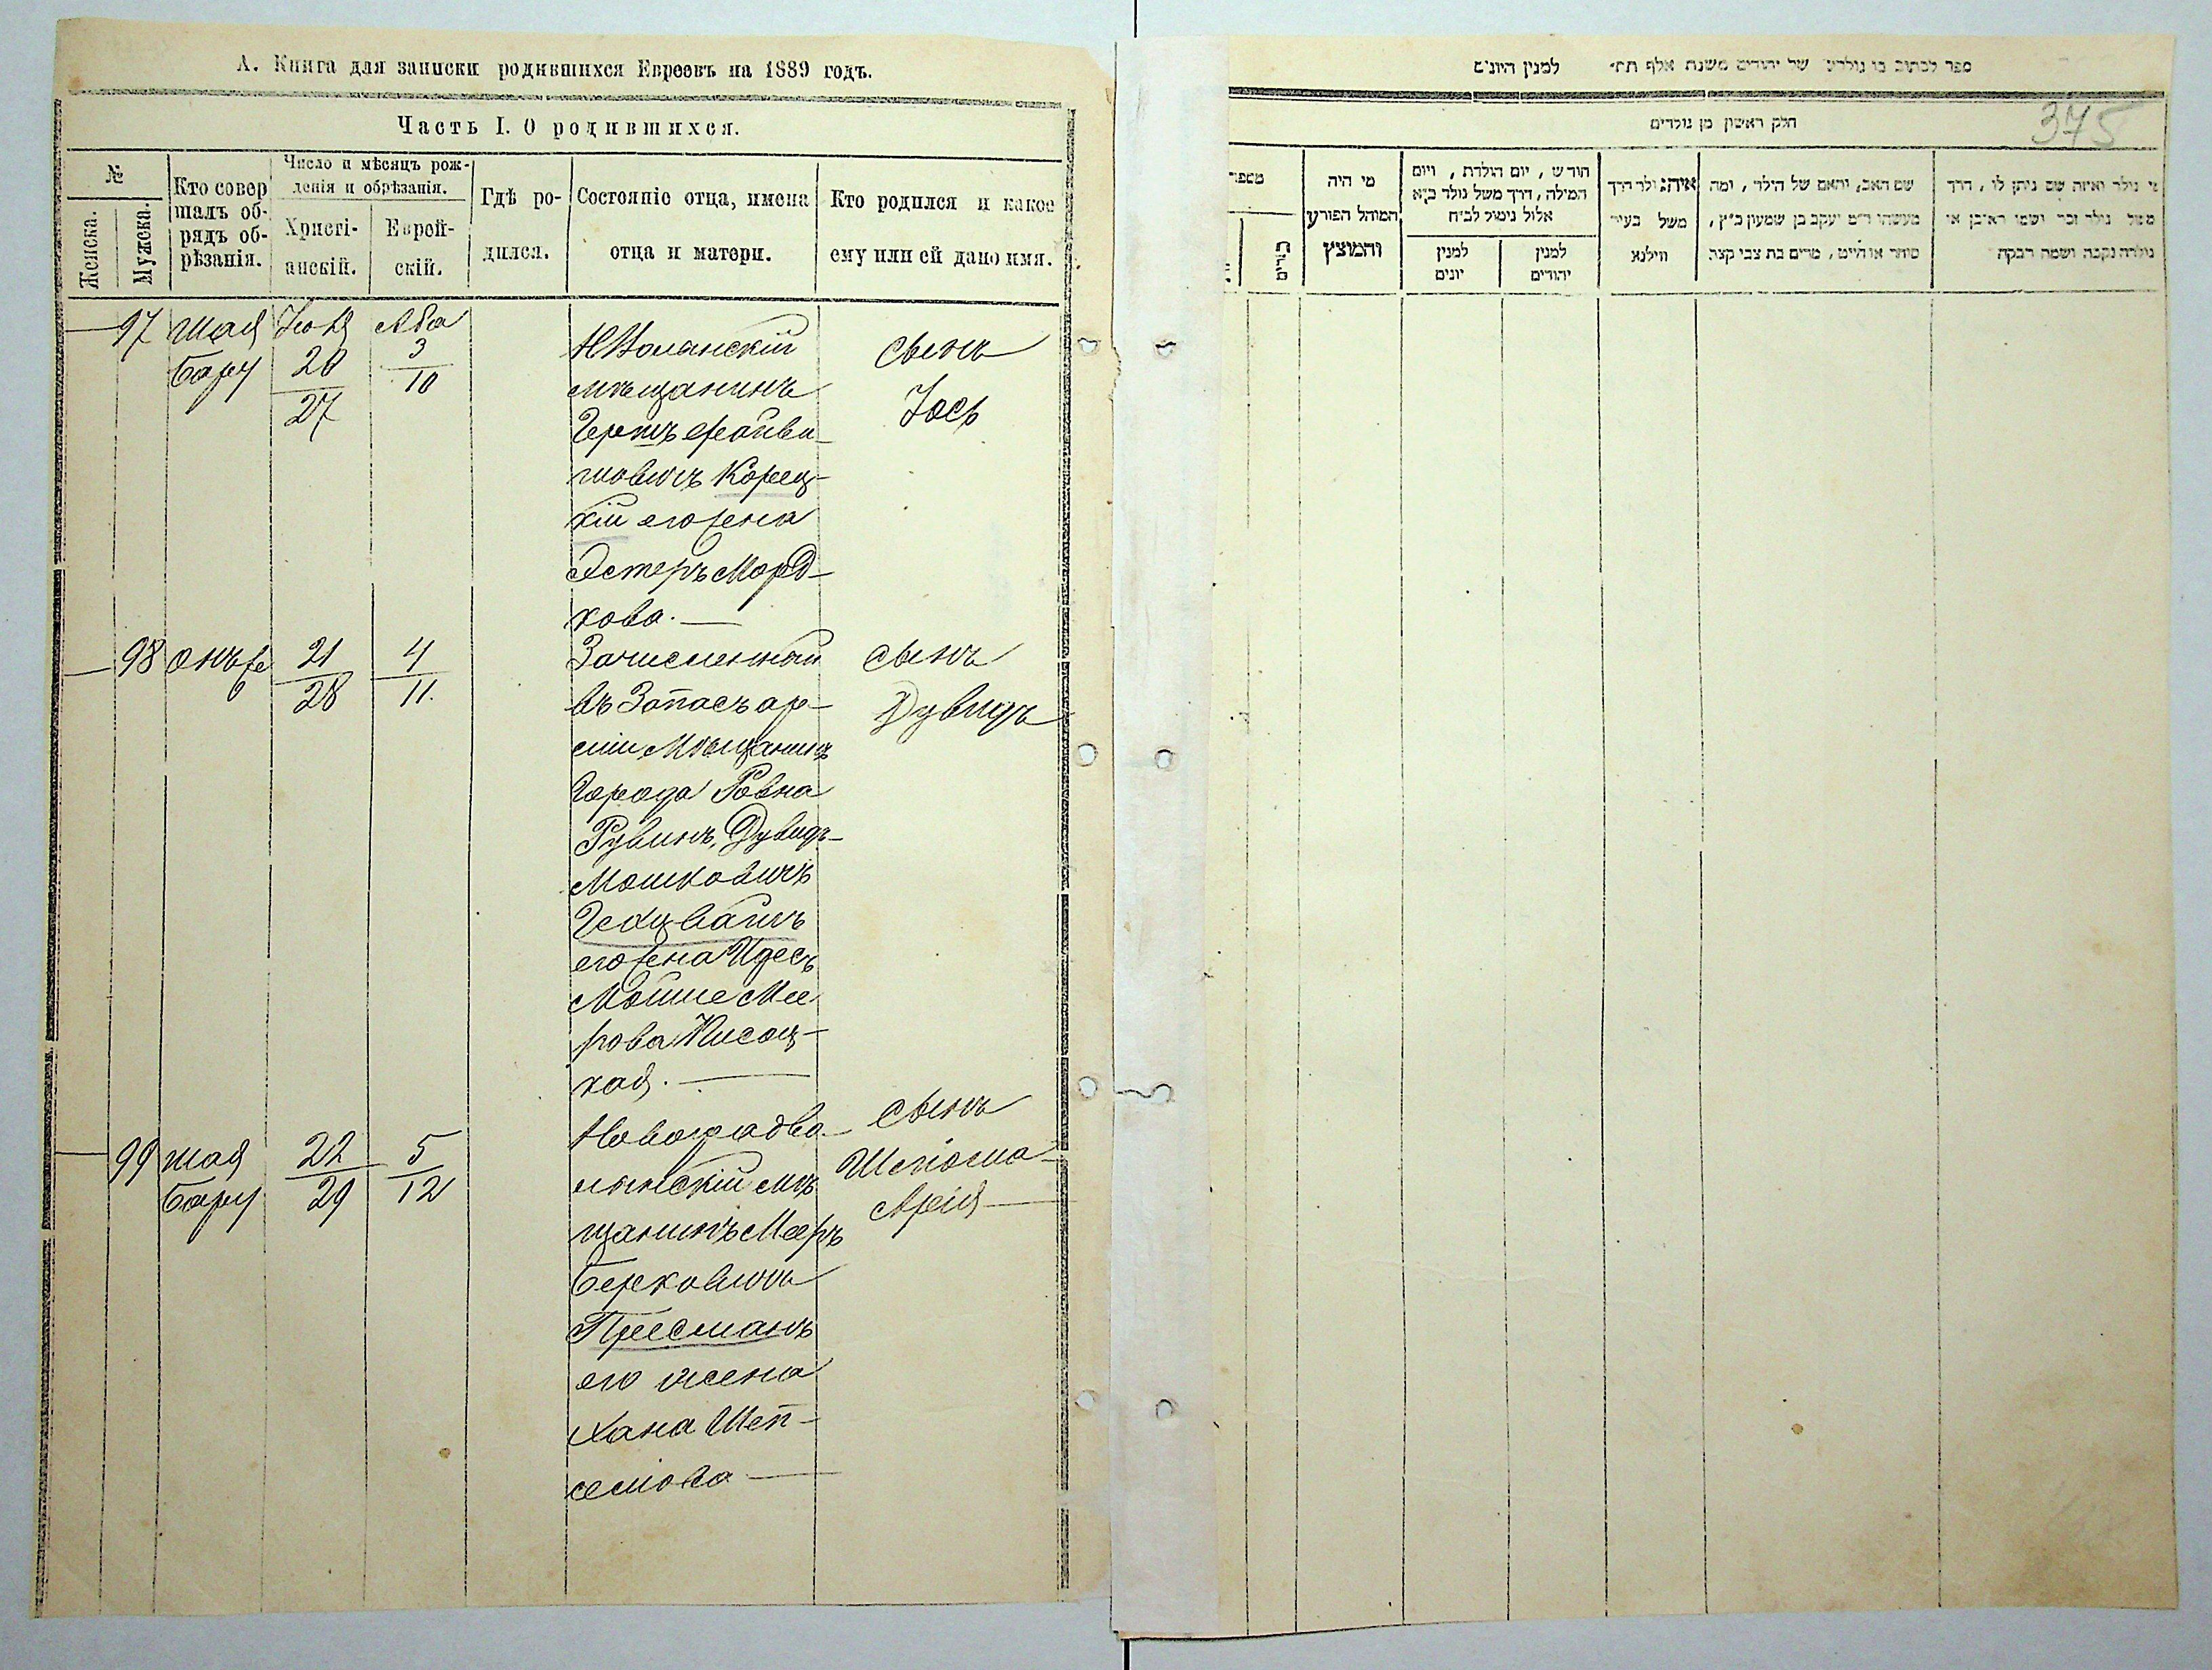 А. Книга для записки родившихся Евреевъ на 1889 годъ.
Часть I. О родившихся.
№
Женска.
Мужска.
Кто совер
шалъ об-
рядъ об-
рѣзанія.
Число и мѣсяцъ рож-
денія и обрѣзанія.
Христі-
анскій.
Еврей-
скій.
Гдѣ ро-
дился.
Состояніе отца, имена
отца и матери.
Кто родился и какое
ему или ей дано имя.
97 Шая Іюля Аба
Бару 20 3
27 10
мѣщанинъ
Гершъ Файви-
шовичъ Корец-
кій его жена
Эстеръ Морд-
кова.
сынъ
Іось
98 онъ же 21 4
28 11.
Зачисленный
въ Запасъ ар-
міи Мѣщанинъ
Города Ровна
Рувинъ Дувидъ-
Мошковичъ
его жена Идесъ
Мойше Мее
рова
кая.
сынъ
Дувидъ
99 Шая 22 5
Бару 29 12
Новоградво-
лынскій мѣ
щанинъ Мееръ
Берковичъ
Пресманъ
его жена
Хана Шеп-
селіова
сынъ
Шліома
Арія
ספר לכתוב בו נולדים של יהודים משנת אלף תת״ למנין היונים
375
חלק ראשון מן נולדים
מספר
מי היה
המוהל הפורע
והמוצץ
חודש , יום הולדת , ויום
המילה , דרך משל נולד ב״א
אלול נימול לב״ח
למנין
יונים
למנין
יהודים
איה נולד דרך
משל בעיר
ווילנא
שם האב, והאם של הילד , ומה
מעשהו ד״מ יעקב בן שמעון כ״ץ ,
סוחר או חייט , מרים בת צבי קצה
מי נולד ואיזה שם ניתן לו , דרך
משל נולד זכר ושמו ראובן או
נולדה נקבה ושמה רבקה